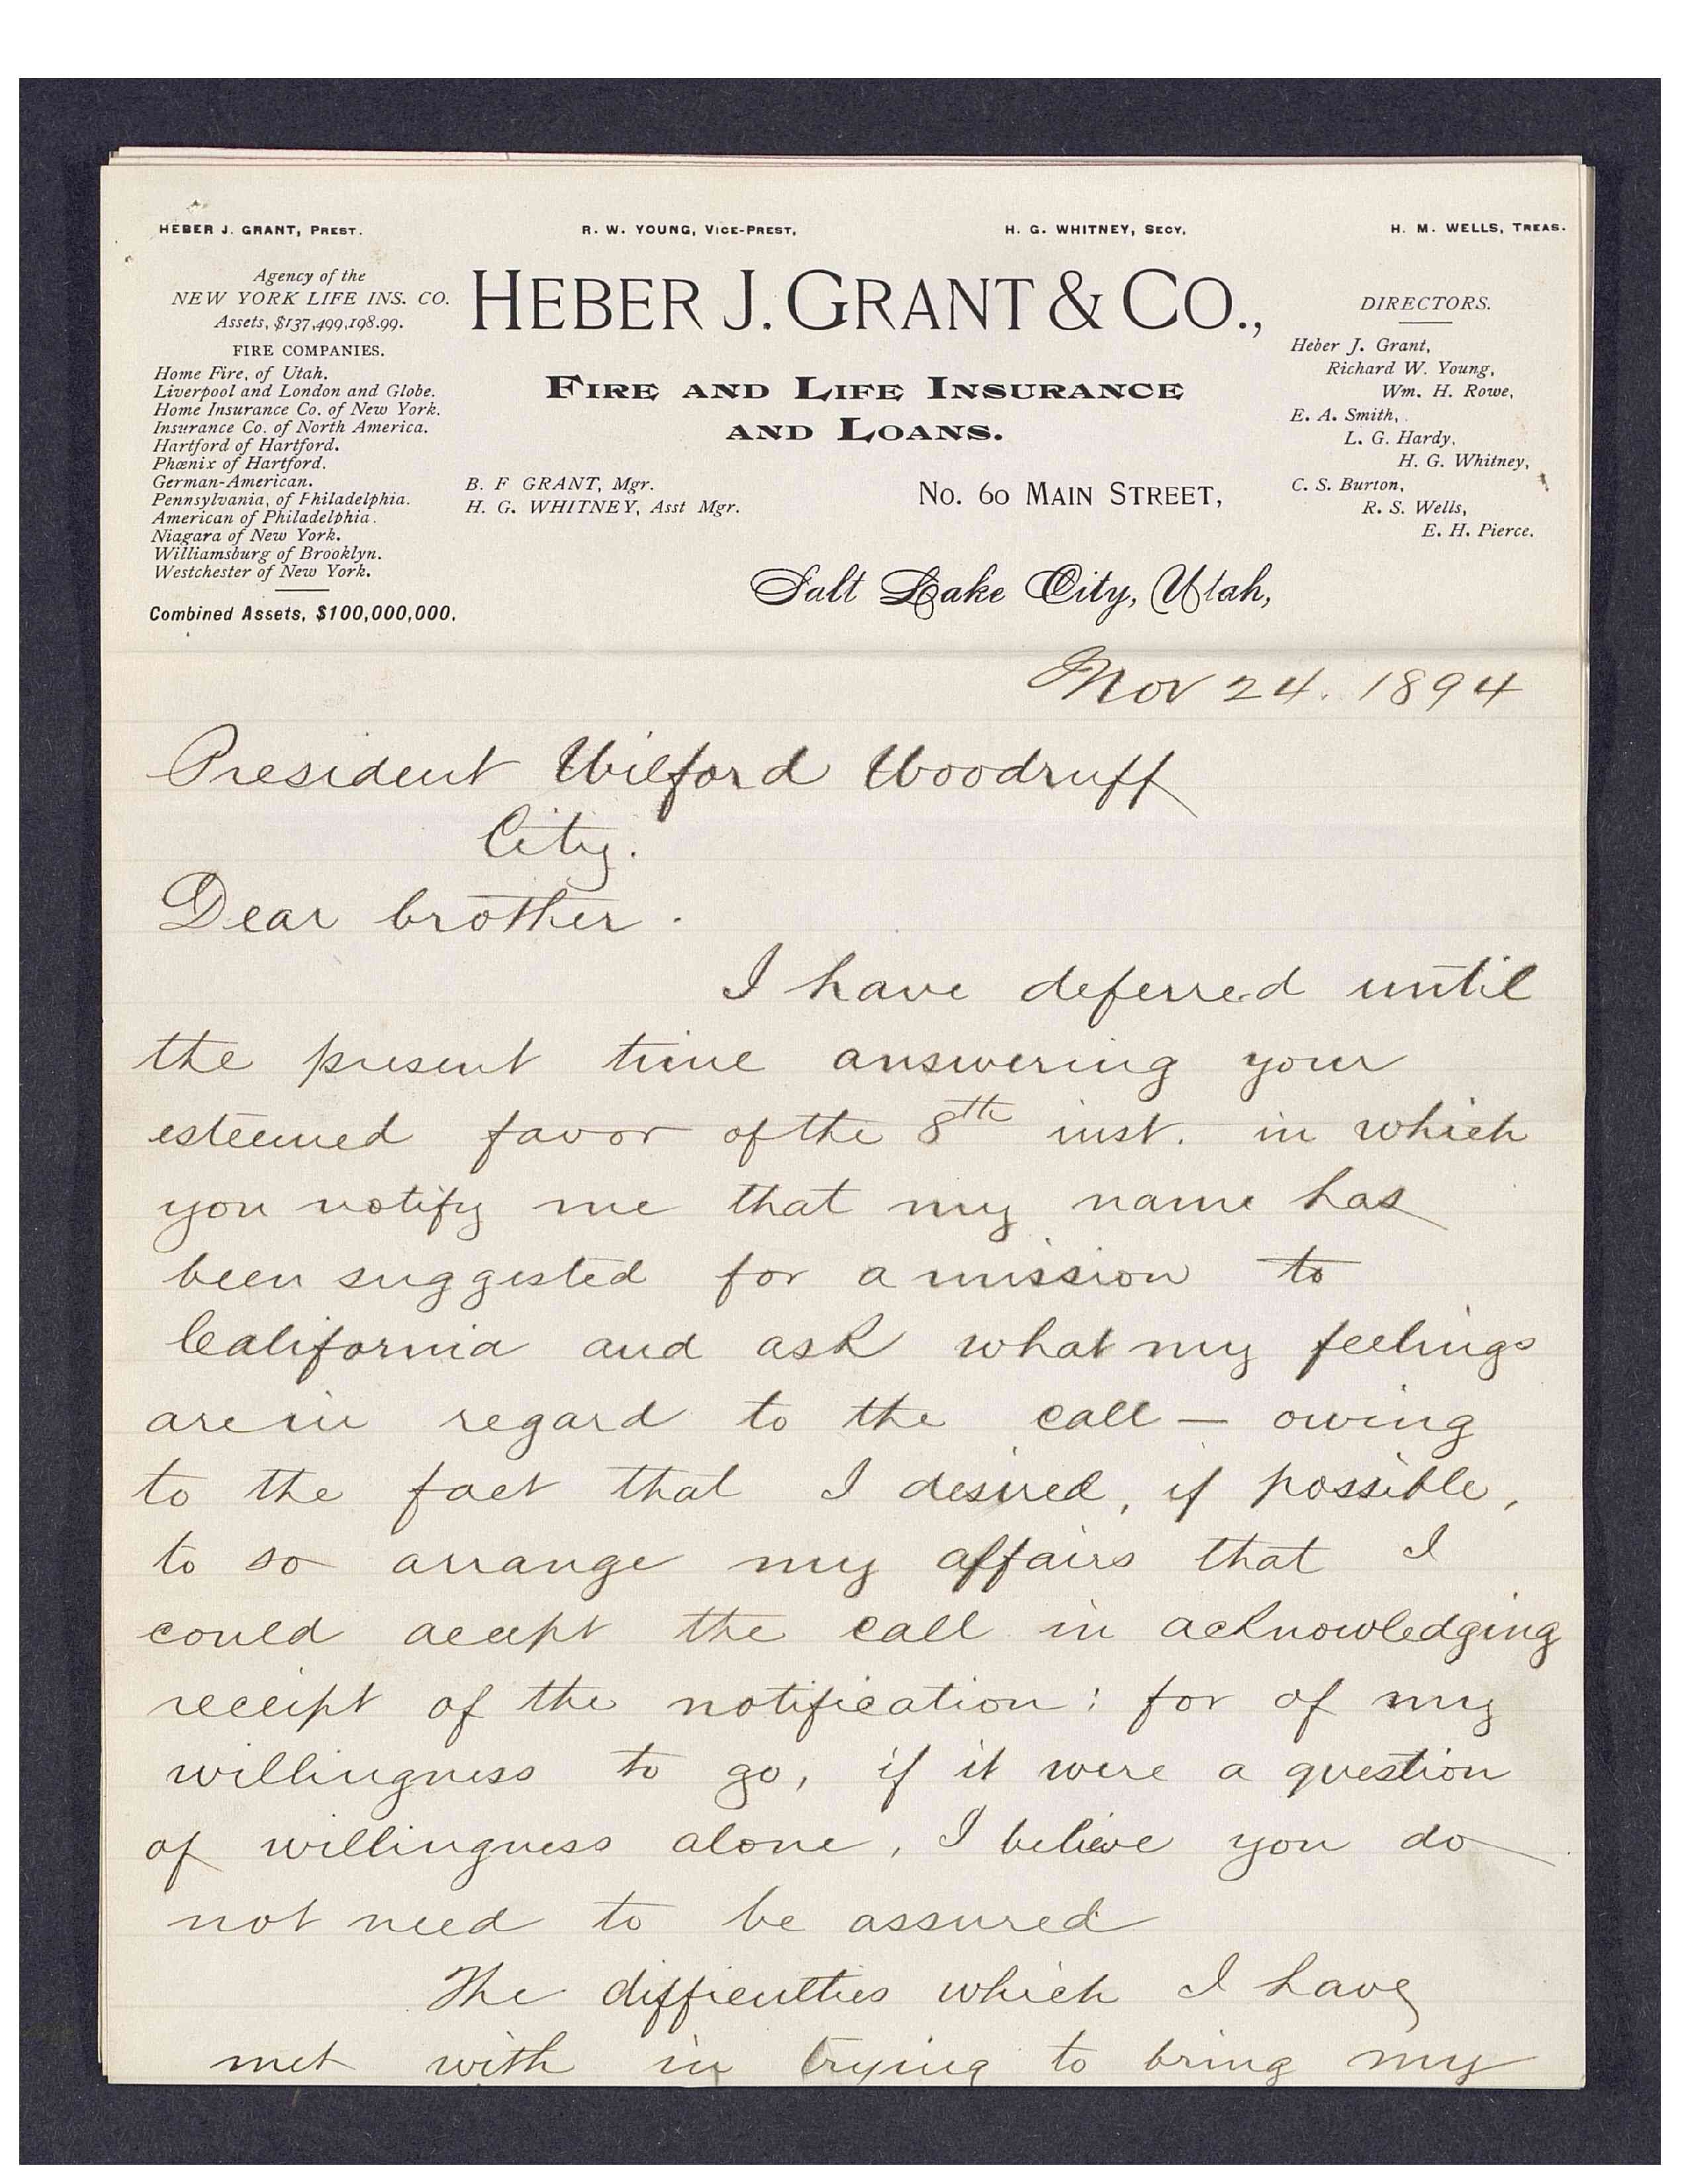 HEBER J. GRANT, PREST.
R. W. YOUNG, VICE-PREST,
H. G. WHITNEY, SECY,
H. M. WELLS, TREAS.
Agency of the
NEW YORK LIFE INS. CO.
Assets, $137,499,198.99.
FIRE COMPANIES.
Home Fire, of Utah.
Liverpool and London and Globe.
Home Insurance Co. of New York.
Insurance Co. of North America.
Hartford of Hartford.
Phœnix of Hartford.
German-American.
Pennsylvania, of Philadelphia.
American of Philadelphia.
Niagara of New York.
Williamsburg of Brooklyn.
Westchester of New York.
Combined Assets, $100,000,000.
HEBER J. GRANT & CO.,
FIRE AND LIFE INSURANCE
AND LOANS.
B. F GRANT, Mgr.
H. G. WHITNEY, Asst Mgr.
No. 60 MAIN STREET,
Salt Lake City, Utah,
DIRECTORS.
Heber J. Grant,
Richard W. Young,
Wm. H. Rowe,
E. A. Smith,
L. G. Hardy,
H. G. Whitney,
C. S. Burton,
R. S. Wells,
E. H. Pierce.
Nov 24. 1894
President Wilford Woodruff
City.
Dear brother.
I have deferred until
the present time answering your
esteemed favor of the 8th inst. in which
you notify me that my name has
been suggested for a mission to
California and ask what my feelings
are in regard to the call — owing
to the fact that I desired, if possible,
to so arrange my affairs that I
could accept the call in acknowledging
receipt of the notification: for of my
willingness to go, if it were a question
of willingness alone, I believe you do
not need to be assured
The difficulties which I have
met with in trying to bring my